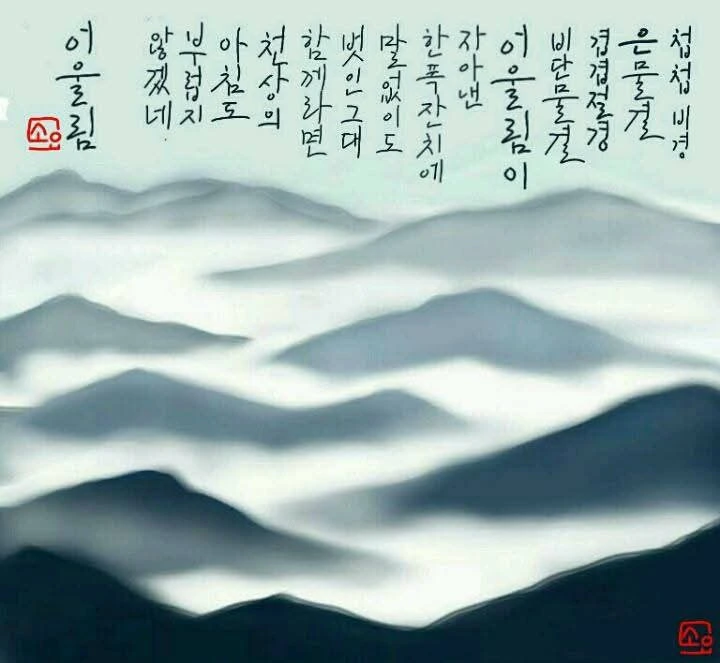 첩첩비경
은물결
겹겹절경
비단물결
어울림이
자아낸
한폭잔치에
말없이도
벗인그대
함께라면
천상의
아침도
부럽지
않겠네
어울림
소운
소운